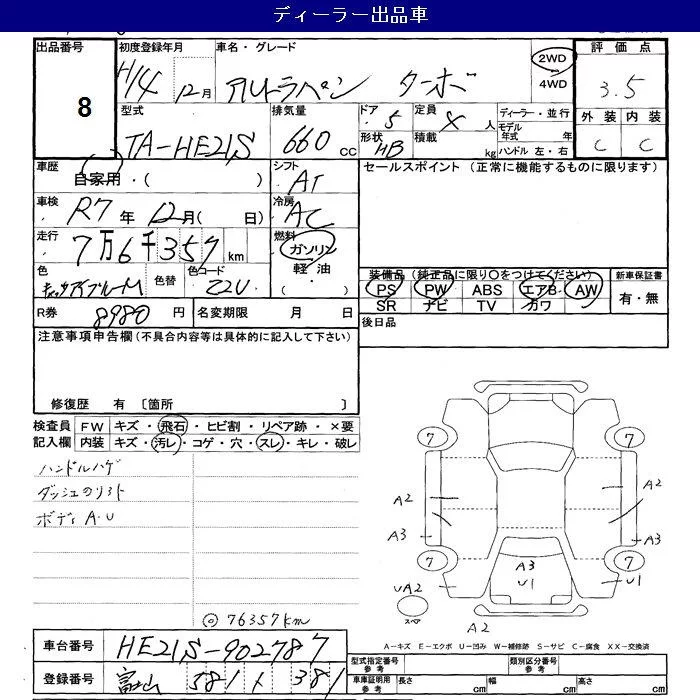 ディーラー出品車
出品番号 初度登録年月 車名・グレード 評価点
8 H14 12月 アルトラパン ターボ 2WD 4WD 3.5
型式 排気量 ドア 定員 ディーラー・並行 外装 内装
TA-HE21S 660 CC 5 人 モデル年式 年 C C
形状 HB 積載 kg ハンドル 左・右
車歴 シフト セールスポイント (正常に機能するものに限ります)
自家用・( ) AT
車検 R7 年 12月( 日) 冷房 AC
走行 7万6千357 km 燃料 ガソリン
軽油・( )
色 色替 色コード Z2U 装備品 (純正品に限り○をつけてください) 新車保証書
PS PW ABS エアB AW 有・無
SR ナビ TV カワ
R券 8980 円 名変期限 月 日 後日品
注意事項申告欄(不具合内容等は具体的に記入して下さい)
修復歴 有 〔箇所 〕
検査員 FW キズ・飛石・ヒビ割・リペア跡・×要
記入欄 内装 キズ・汚レ・コゲ・穴・スレ・キレ・破レ
ハンドルハゲ
ダッシュのリフト
ボディA・U
7 7
A2 A2
A3 A3
7 7
A3
UA2 U1 U1
スペア
A2
◎76357km
A-キズ E-エクボ U-凹み W-補修跡 S-サビ C-腐食 XX-交換済
車台番号 HE21S-902787
型式指定番号 参考 類別区分番号 参考
登録番号 富山 581 381
車庫証明用 参考 長さ cm 幅 cm 高さ cm